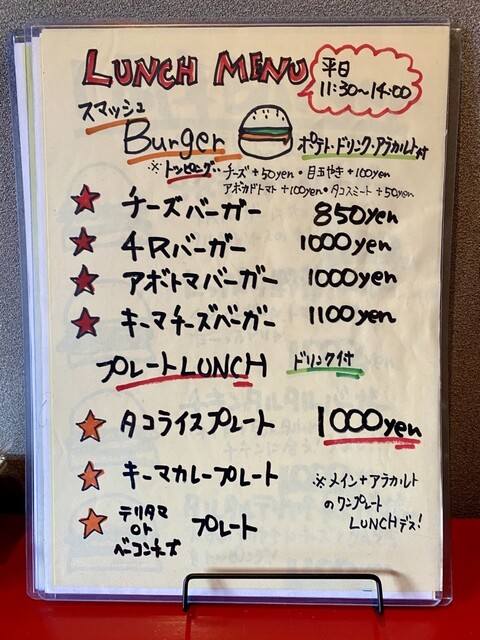 LUNCH MENU
平日
11:30~14:00
スマッシュ
Burger
ポテト・ドリンク・アラカルト付
※トッピング・・チーズ+50yen・目玉やき+100yen
アボカドトマト+100yen・タコスミート+50yen
★ チーズバーガー 850yen
★ 4Rバーガー 1000yen
★ アボトマバーガー 1000yen
★ キーマチーズバーガー 1100yen
プレートLUNCH ドリンク付
★ タコライスプレート 1000yen
★ キーマカレープレート
※メイン+アラカルト
のワンプレート
LUNCHデス!
★ テリタマ
or
ベーコンチーズ
プレート